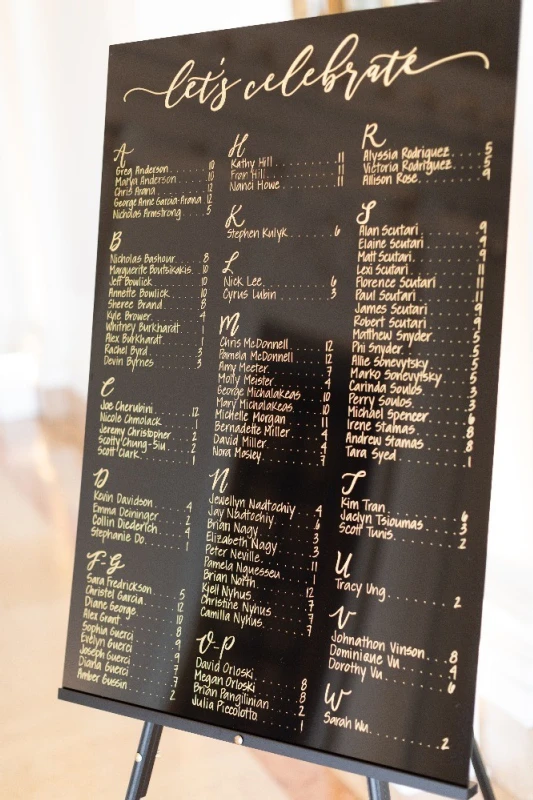 let's celebrate
A
Greg Anderson 10
Marya Anderson 10
Chris Arana 12
George Anne Garcia-Arana 12
Nicholas Armstrong 5
B
Nicholas Bashour 8
Marguerite Boutsikakis 10
Jeff Bowlick 10
Annette Bowlick 10
Sheree Brand 8
Kyle Brower 4
Whitney Burkhardt 1
Alex Burkhardt 1
Rachel Byrd 3
Devin Byrnes 3
C
Joe Cherubini 12
Nicole Chmolack 1
Jeremy Christopher 2
Scotty Chung-Siu 2
Scott Clark 1
D
Kevin Davidson 4
Emma Deininger 2
Collin Diederich 4
Stephanie Do 1
F-G
Sara Fredrickson 5
Christel Garcia 12
Diane George
Alex Grant 8
Sophia Guerci 9
Evelyn Guerci 9
Joseph Guerci 9
Diana Guerci 7
Amber Gussin 2
H
Kathy Hill 11
Fran Hill 11
Nanci Howe 11
K
Stephen Kulyk 6
L
Nick Lee 6
Cyrus Lubin 3
M
Chris McDonnell 12
Pamela McDonnell 12
Amy Meeter 7
Molly Meister 4
George Michalakeas 10
Mary Michalakeas 10
Michelle Morgan 11
Bernadette Miller 4
David Miller 4
Nora Mosley 7
N
Jewellyn Nadtochiy 4
Jay Nadtochiy 6
Brian Nagy 3
Elizabeth Nagy 3
Peter Neville 11
Pamela Nguesseu 1
Brian North 12
Kjell Nyhus 7
Christine Nyhus 7
Camilla Nyhus 7
O-P
David Orloski 8
Megan Orloski 8
Brian Pangilinian 2
Julia Piccolotto 1
R
Alyssia Rodriguez 5
Victoria Rodriguez 5
Allison Rose 9
S
Alan Scutari 9
Elaine Scutari 9
Matt Scutari 9
Lexi Scutari 11
Florence Scutari 11
Paul Scutari 11
James Scutari 9
Robert Scutari 9
Matthew Snyder
Phi Snyder 5
Allie Sonevytsky 5
Marko Sonevytsky 5
Carinda Soulos 3
Perry Soulos 3
Michael Spencer 6
Irene Stamas 8
Andrew Stamas 8
Tara Syed 1
T
Kim Tran 6
Jaclyn Tsioumas 3
Scott Tunis 2
U
Tracy Ung 2
V
Johnathon Vinson 8
Dominiane Vu 4
Dorothy Vu 6
W
Sarah Wu 2